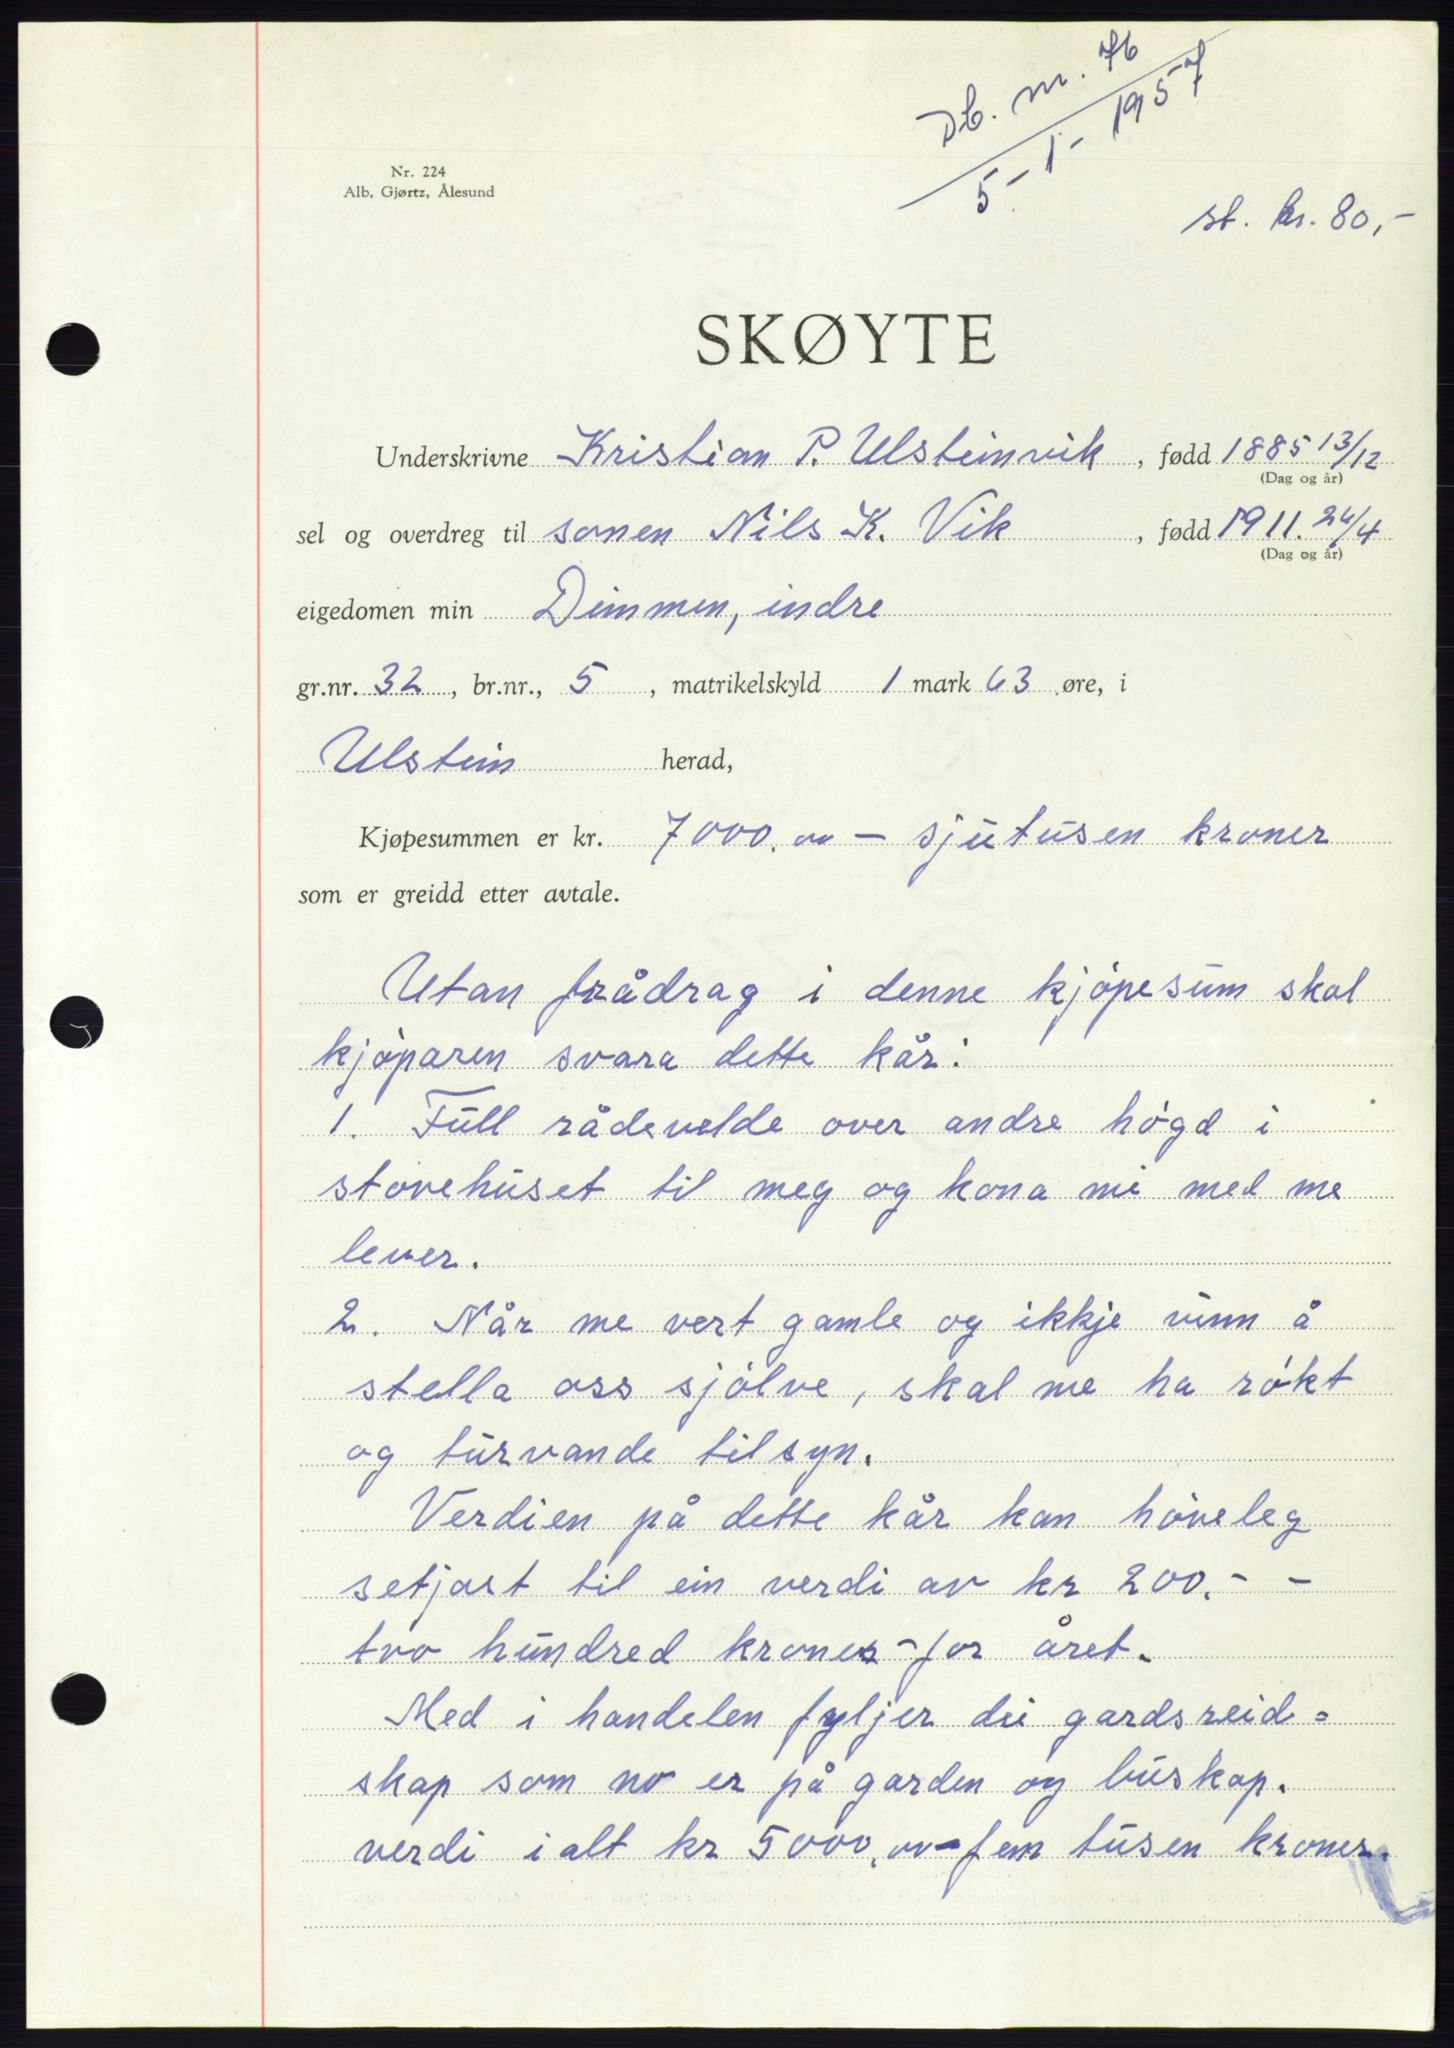 Db. nr. 76
5.-1- 1957
st. kr. 80,-
Nr. 224
Alb. Gjørtz, Ålesund
SKØYTE
Underskrivne Kristian P. Ulsteinvik, fødd 1885 13/12
(Dag og år)
sel og overdreg til sonen Nils K. Vik, fødd 1911. 24/4
(Dag og år)
eigedomen min Dimmen, indre
gr.nr. 32, br.nr., 5, matrikelskyld 1 mark 63 øre, i
Ulstein herad,
Kjøpesummen er kr. 7000.00 – sjutusen kroner
som er greidd etter avtale.
Utan frådrag i denne kjøpesum skal
kjøparen svara dette kår:
1. Full rådevelde over andre høgd i
stovehuset til meg og kona mi med me
lever.
2. Når me vert gamle og ikkje vinn å
stella oss sjølve, skal me ha røkt
og turvande tilsyn.
Verdien på dette kår kan høveleg
setjast til ein verdi av kr 200.- -
tvo hundred kroner - for året.
Med i handelen fyljer dei gardsreid=
skap som no er på garden og buskap.
verdi i alt kr 5000,00 - fem tusen kroner.